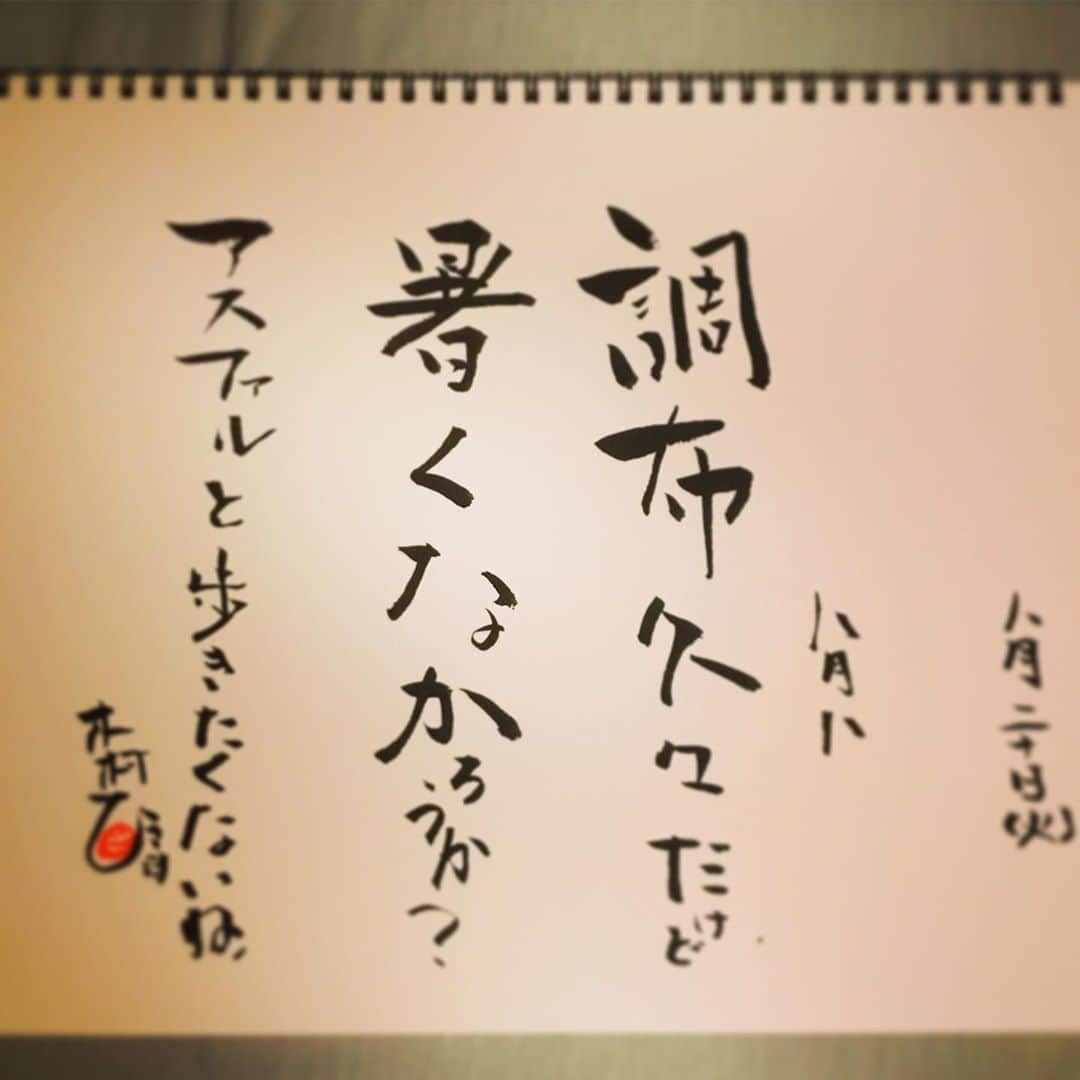 八月二十日(火)
八月八
調布久々だけど
暑くなかろうか?
アスファルと歩きたくないね
木村